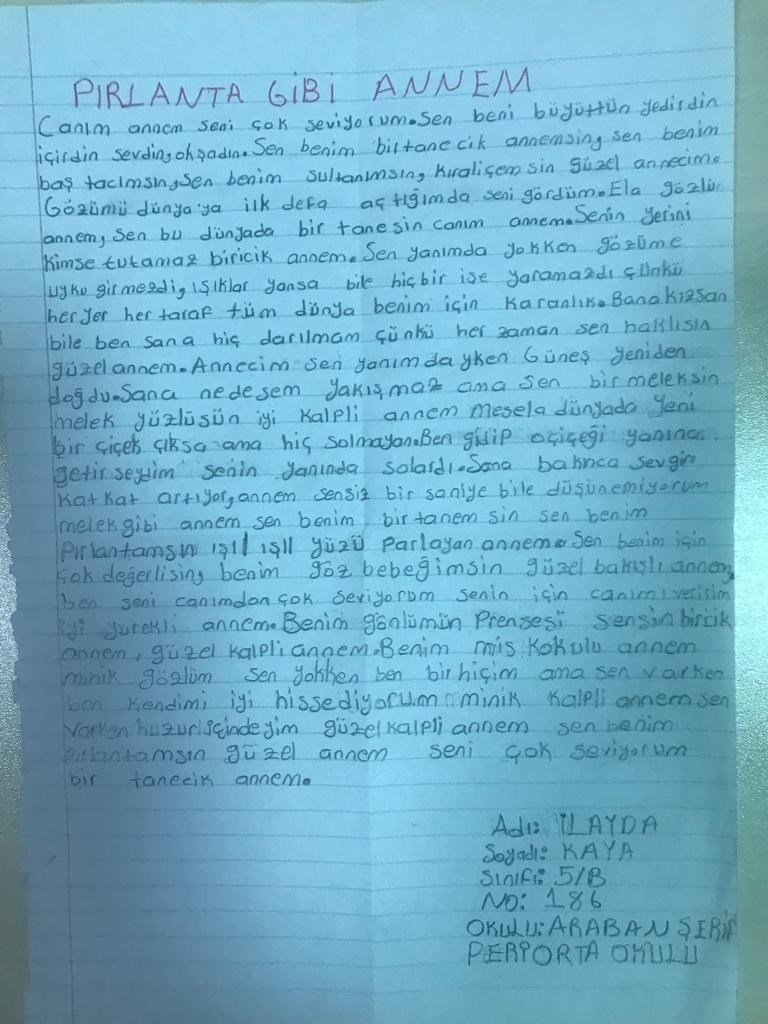 PIRLANTA GİBİ ANNEM
Canım annem seni çok seviyorum.Sen beni büyüttün yedirdin
içirdin sevdin,okşadın.Sen benim birtanecik annemsin, sen benim
baş tacımsın,sen benim sultanımsın, kıraliçemsin güzel annecim.
Gözümü dünya'ya ilk defa açtığımda seni gördüm.Ela gözlü
annem, sen bu dünyada bir tanesin canım annem.Senin yerini
kimse tutamaz biricik annem.Sen yanımda yokken gözüme
uyku girmezdi, ışıklar yansa bile hiçbir işe yaramazdı çünkü
heryer her taraf tüm dünya benim için karanlık.Bana kızsan
bile ben sana hiç darılmam çünkü her zaman sen haklısın
güzel annem.Annecim sen yanımdayken Güneş yeniden
doğdu.Sana nedesem yakışmaz ama sen bir meleksin
melek yüzlüsün iyi kalpli annem mesela dünyada yeni
bir çiçek çıksa ama hiç solmayan.Ben gidip oçiçeği yanına
getirseydim senin yanında solardı.Sana bakınca sevgin
katkat artıyor,annem sensiz bir saniye bile düşünemiyorum
melek gibi annem sen benim birtanem sin sen benim
Pırlantamsın ışıl ışıl yüzü parlayan annem.Sen benim için
çok değerlisin, benim göz bebeğimsin güzel bakışlı annem,
ben seni canımdan çok seviyorum senin için canımı veririm
iyi yürekli annem.Benim gönlümün Prensesi sensin biricik
annem, güzel kalpli annem.Benim mis kokulu annem
minik gözlüm sen yokken ben bir hiçim ama sen varken
ben kendimi iyi hissediyorum minik kalpli annem sen
varken huzur içindeyim güzel kalpli annem sen benim
pırlantamsın güzel annem seni çok seviyorum
bir tanecik annem.
Adı: İLAYDA
Soyadı: KAYA
Sınıfı: 5/B
NO: 186
OKULU: ARABAN ŞERİF
PERİ ORTA OKULU